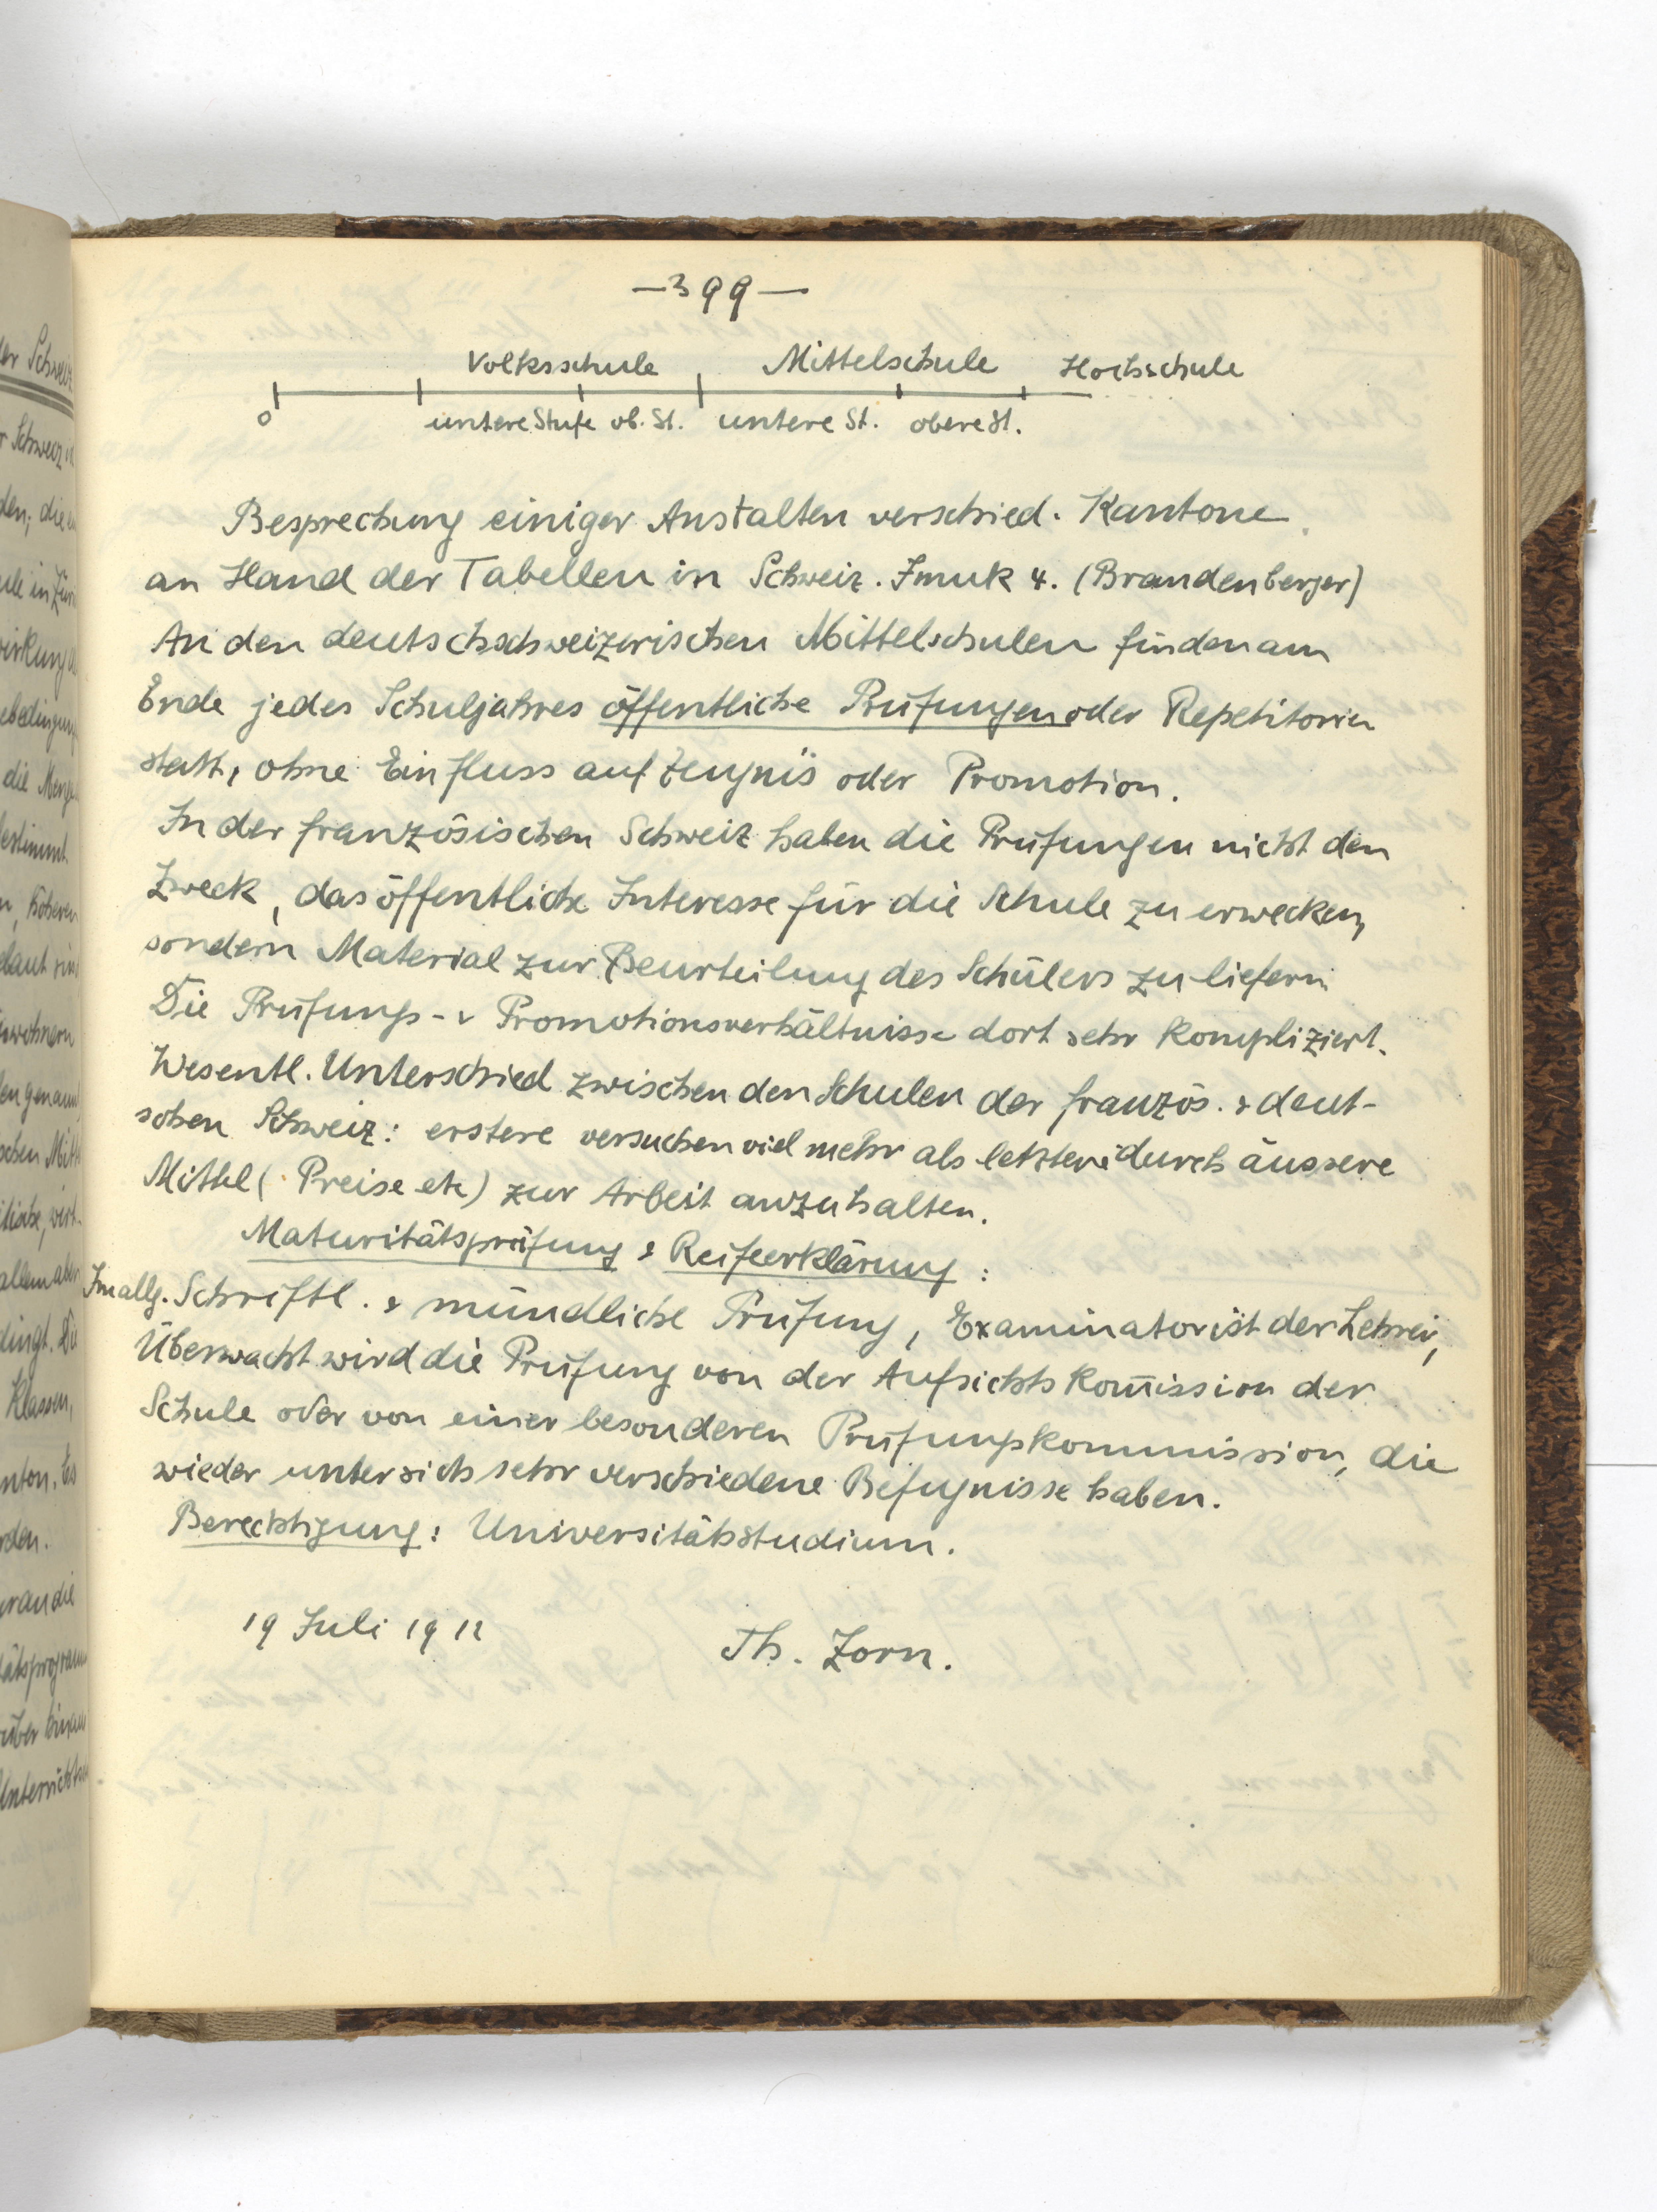 — 399 —
Volksschule Mittelschule Hochschule
0 untere Stufe ob. St. untere St. obere St.
Besprechung einiger Anstalten verschied. Kantone
an Hand der Tabellen in Schweiz. Imuk 4. (Brandenberger)
An den deutschschweizerischen Mittelschulen finden am
Ende jedes Schuljahres öffentliche Prüfungen oder Repetitorien
statt, ohne Einfluss auf Zeugnis oder Promotion.
In der französischen Schweiz haben die Prüfungen nicht den
Zweck, das öffentliche Interesse für die Schule zu erwecken,
sondern Material zur Beurteilung des Schülers zu liefern
Die Prüfungs- & Promotionsverhältnisse dort sehr kompliziert.
Wesentl. Unterschied zwischen den Schulen der französ. & deut-
schen Schweiz: erstere versuchen viel mehr als letztere durch äussere
Mittel (Preise etc) zur Arbeit anzuhalten.
Maturitätsprüfung & Reifeerklärung:
Im allg. Schriftl. & mündliche Prüfung, Examinator ist der Lehrer,
Überwacht wird die Prüfung von der Aufsichtskom̄ission der
Schule oder von einer besonderen Prüfungskommission, die
wieder unter sich sehr verschiedene Befugnisse haben.
Berechtigung: Universitätsstudium.
19 Juli 1912 Th. Zorn.